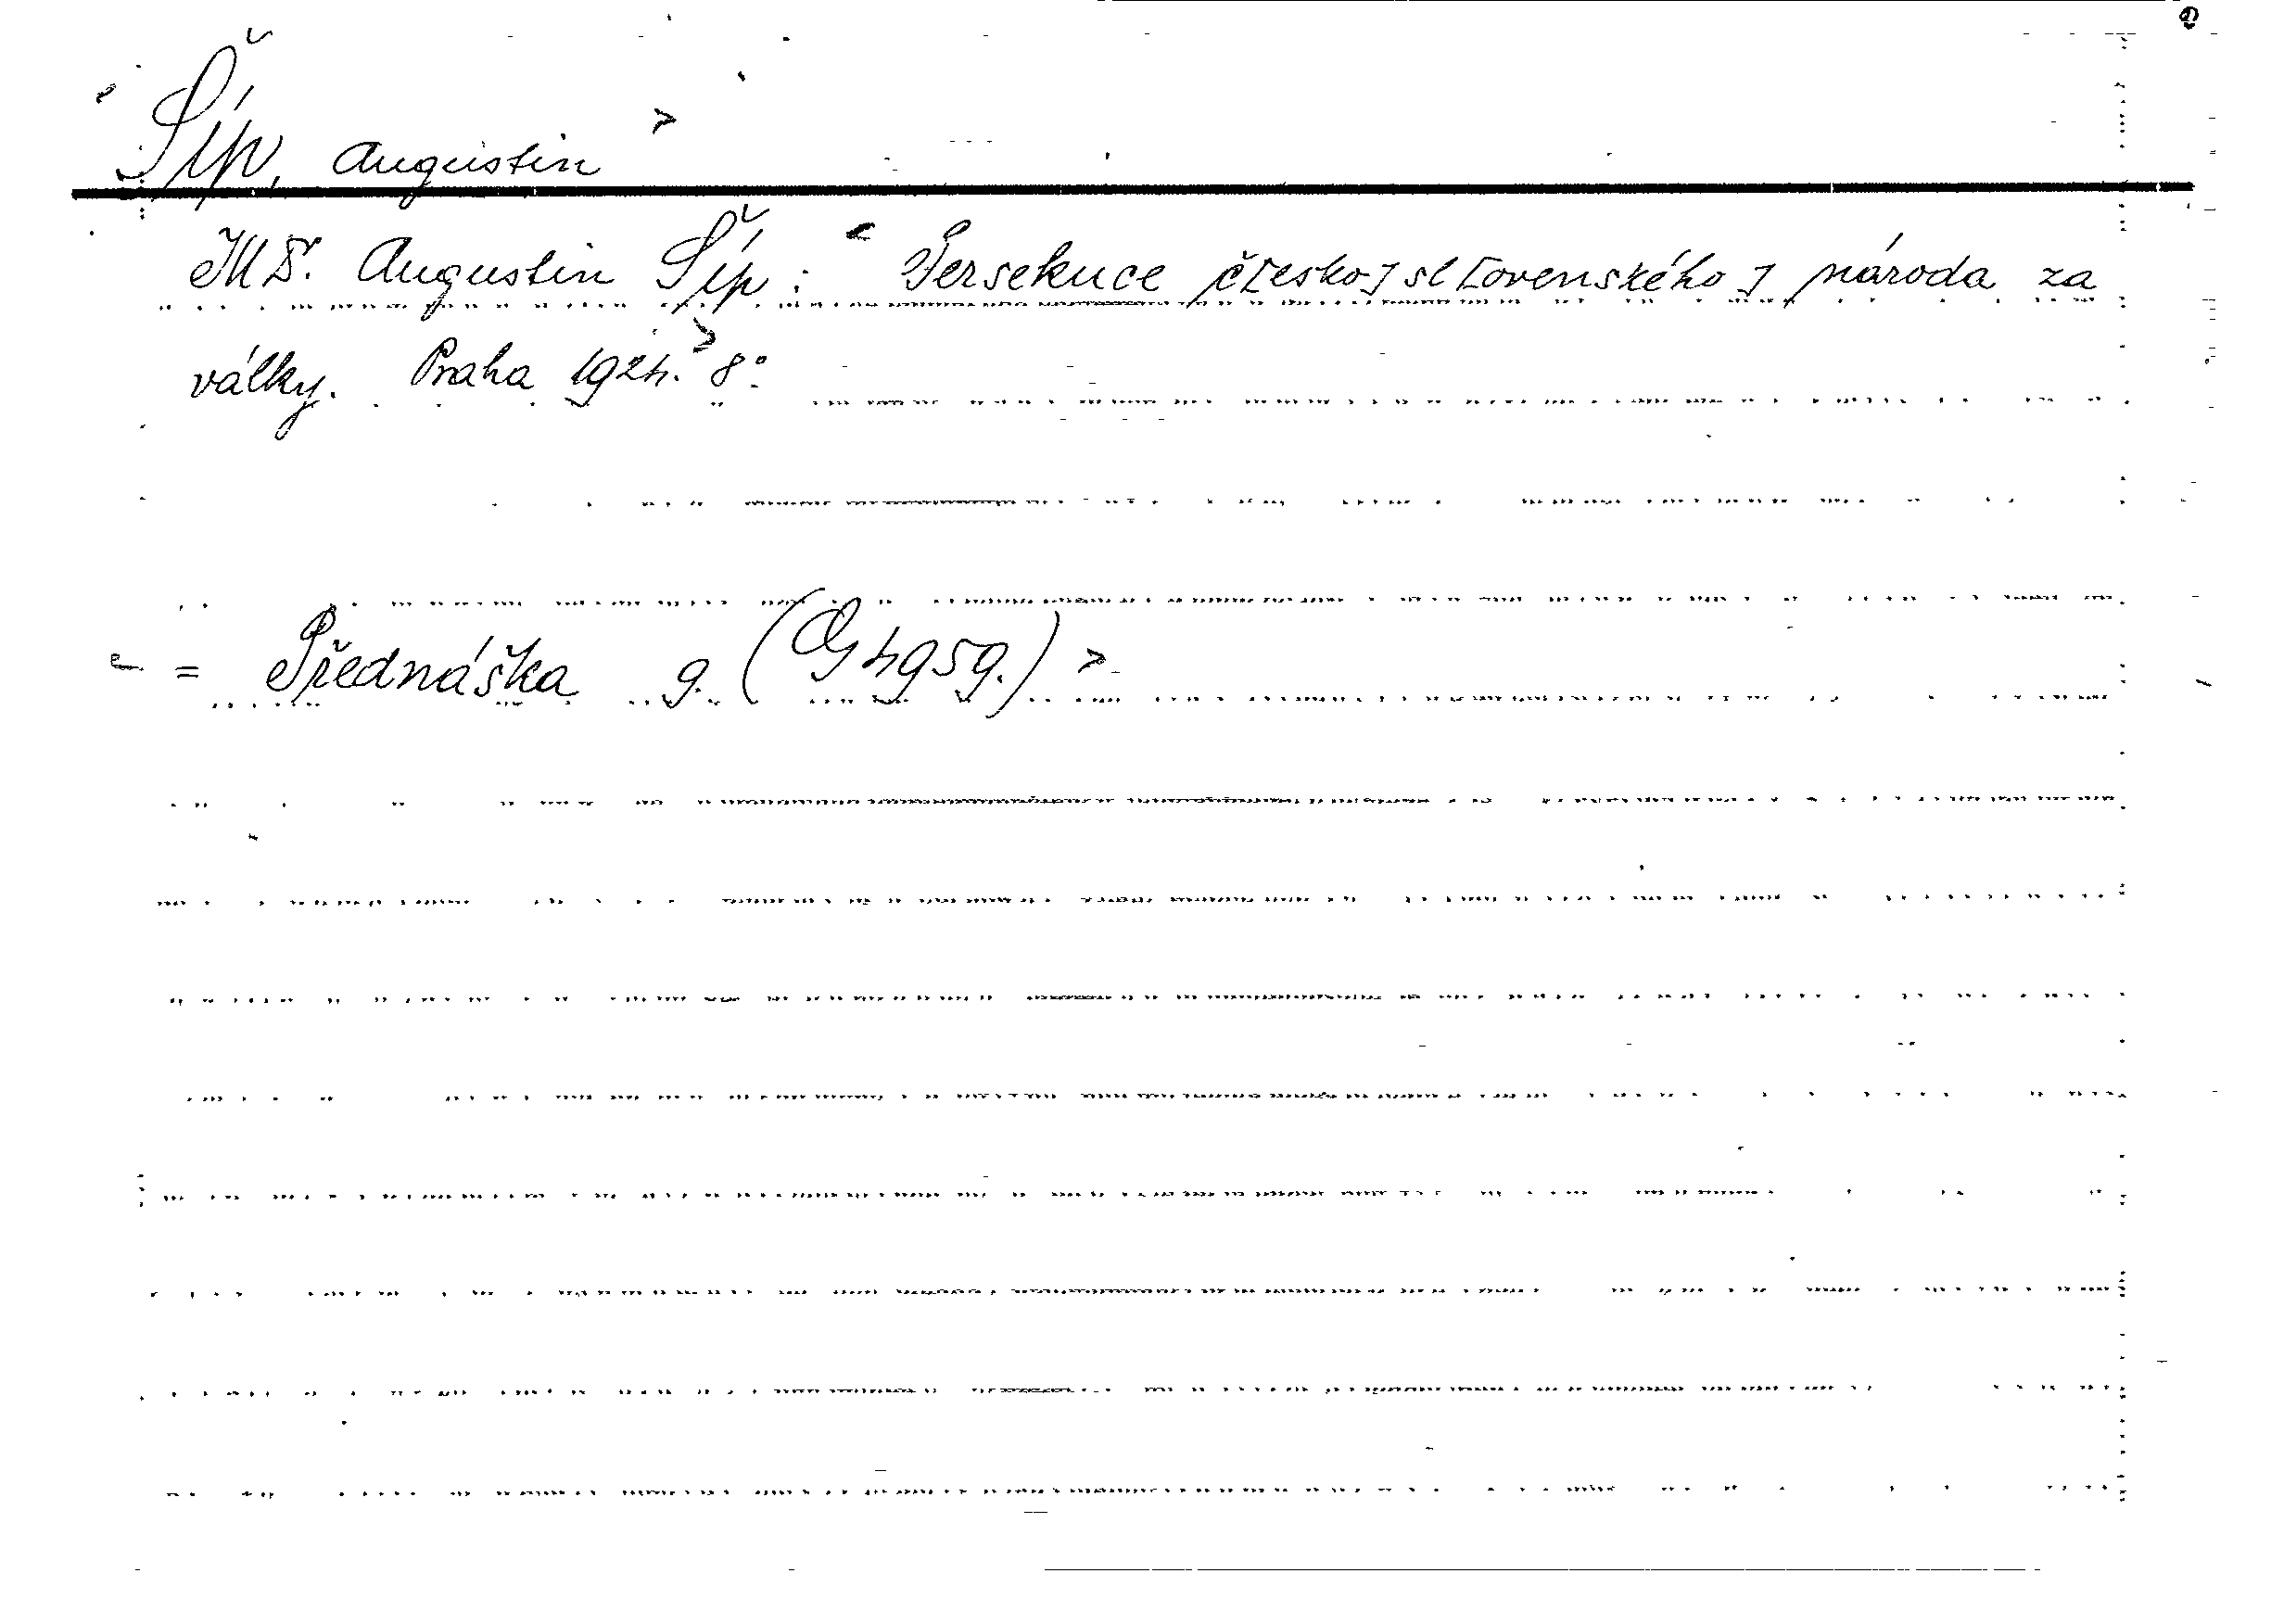 Šíp, Augustin
Augustin Šíp: Persekuce č[esko]sl[ovenského] národa za
války. Praha 1924. 8°.
= Přednáška 9. (G 4959.)